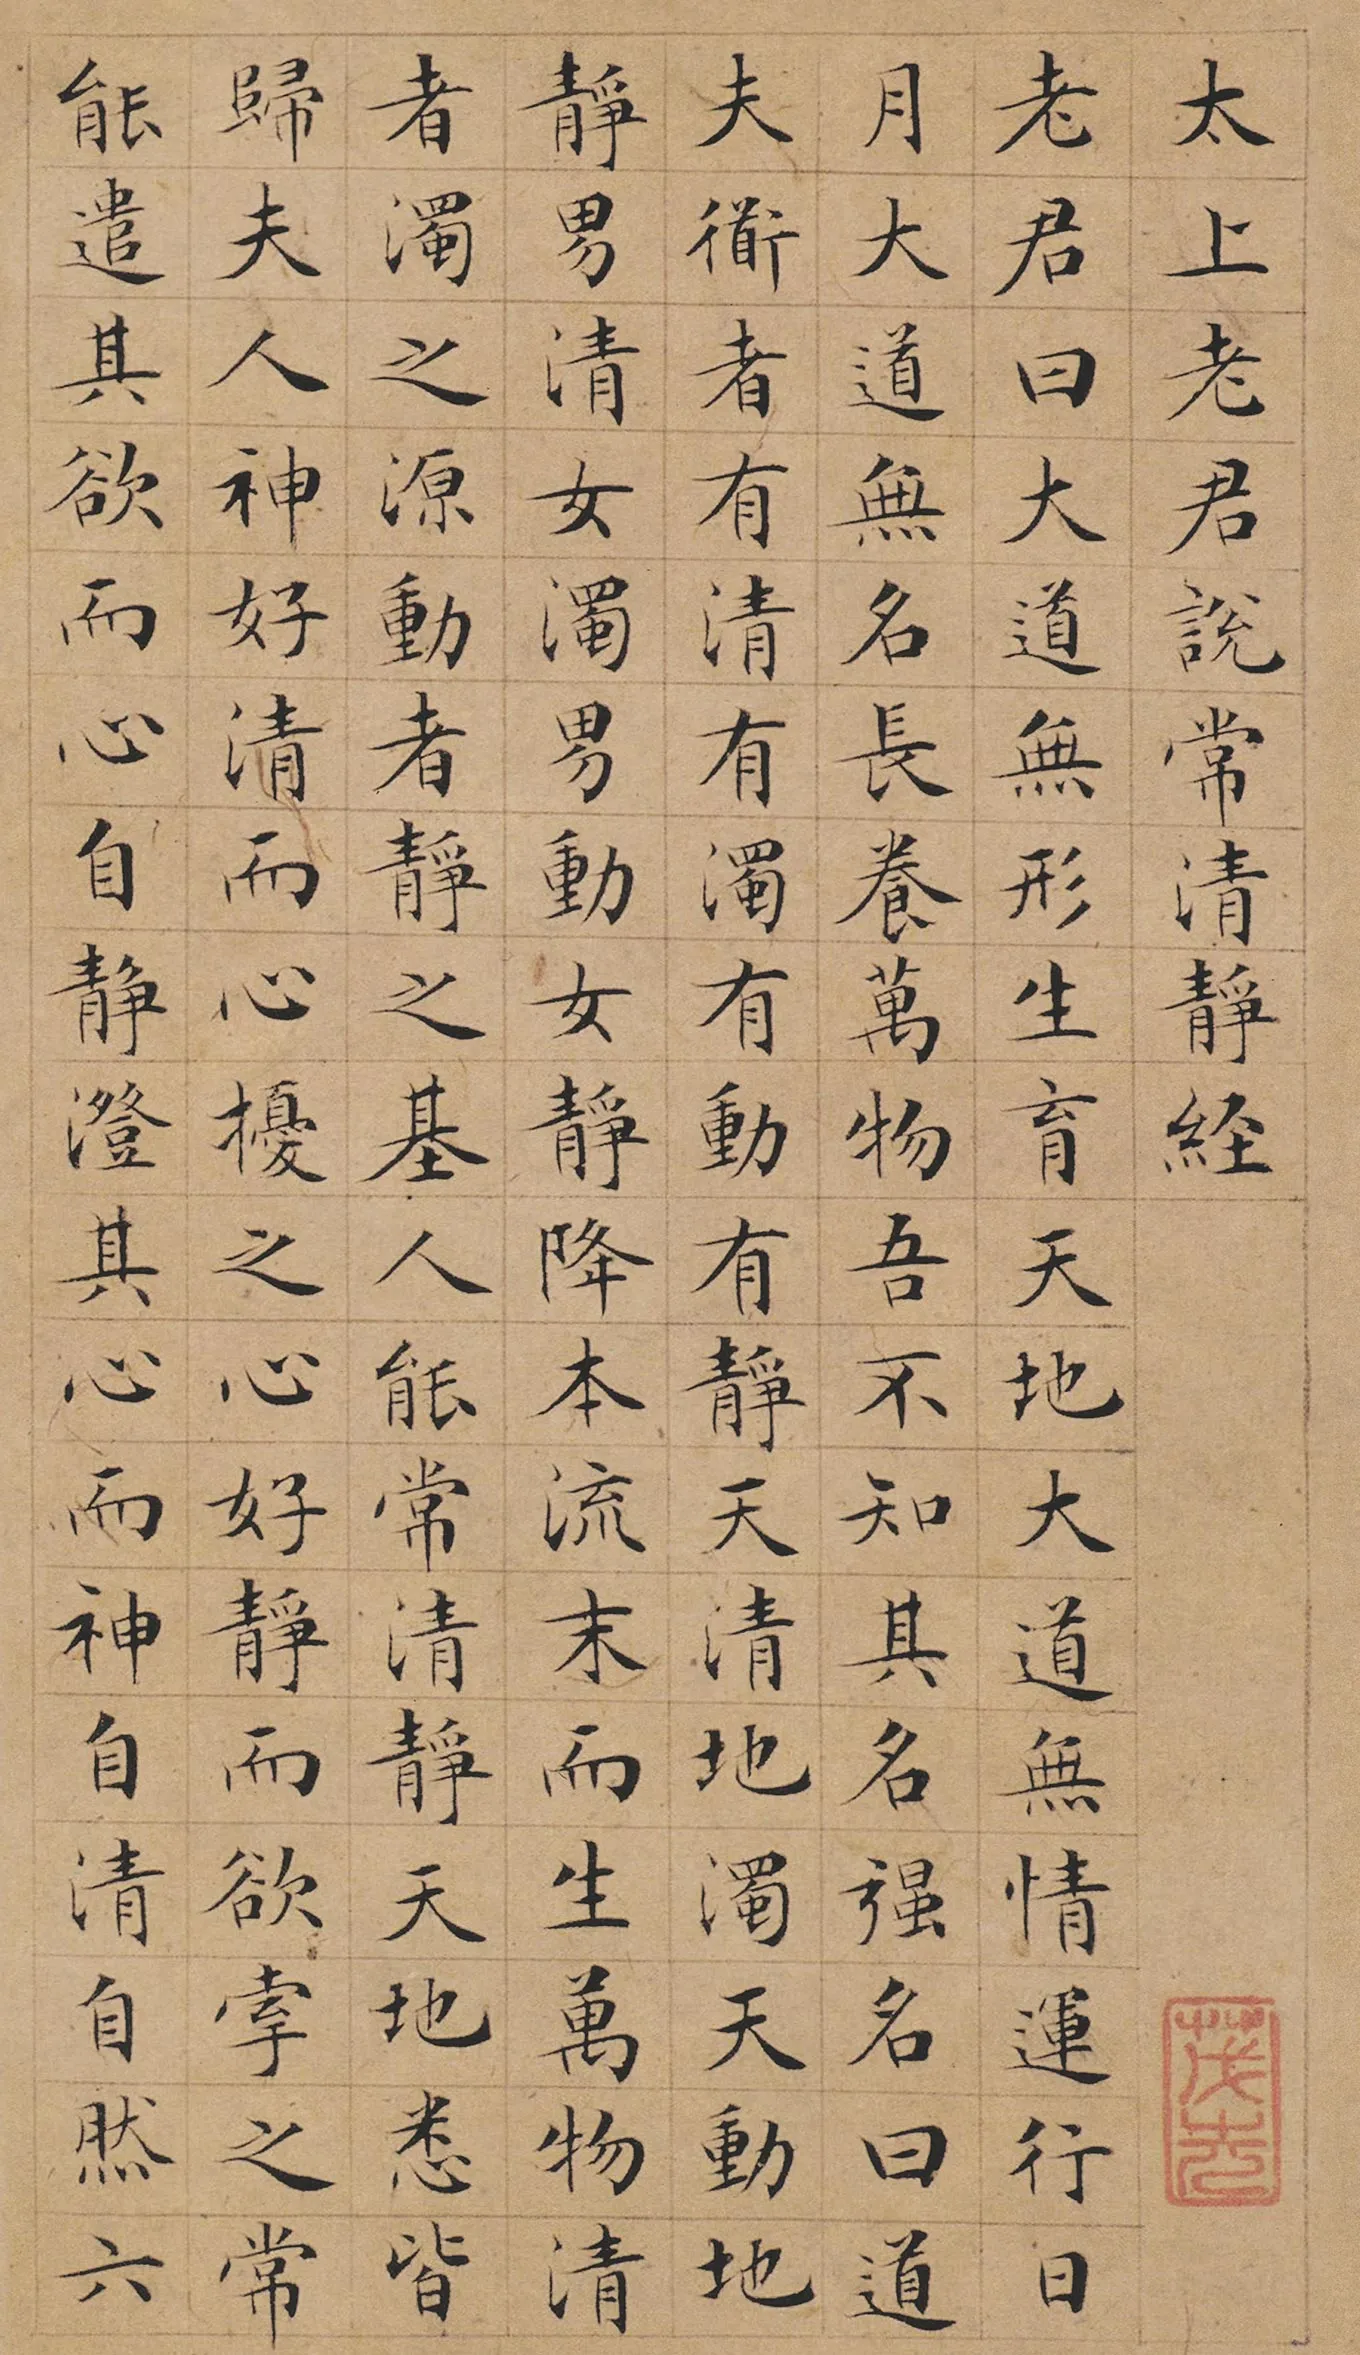 太上老君說常清靜経
老君曰大道無形生育天地大道無情運行日
月大道無名長養萬物吾不知其名强名曰道
夫衟者有清有濁有動有靜天清地濁天動地
靜男清女濁男動女靜降本流末而生萬物清
者濁之源動者靜之基人能常清靜天地悉皆
歸夫人神好清而心擾之心好靜而欲牽之常
能遣其欲而心自静澄其心而神自清自然六